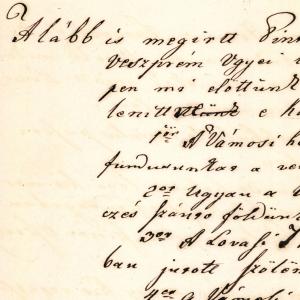 Alább is megirtt Pint
veszprém Vgyei
pen mi előttünk
lenitt e h
1ör A Vámosi h
fundusunkat a ve
2or Ugyan a
czés szánto földün
3or A Lovasi
ban jutott szőlőn
4er a Vámosi